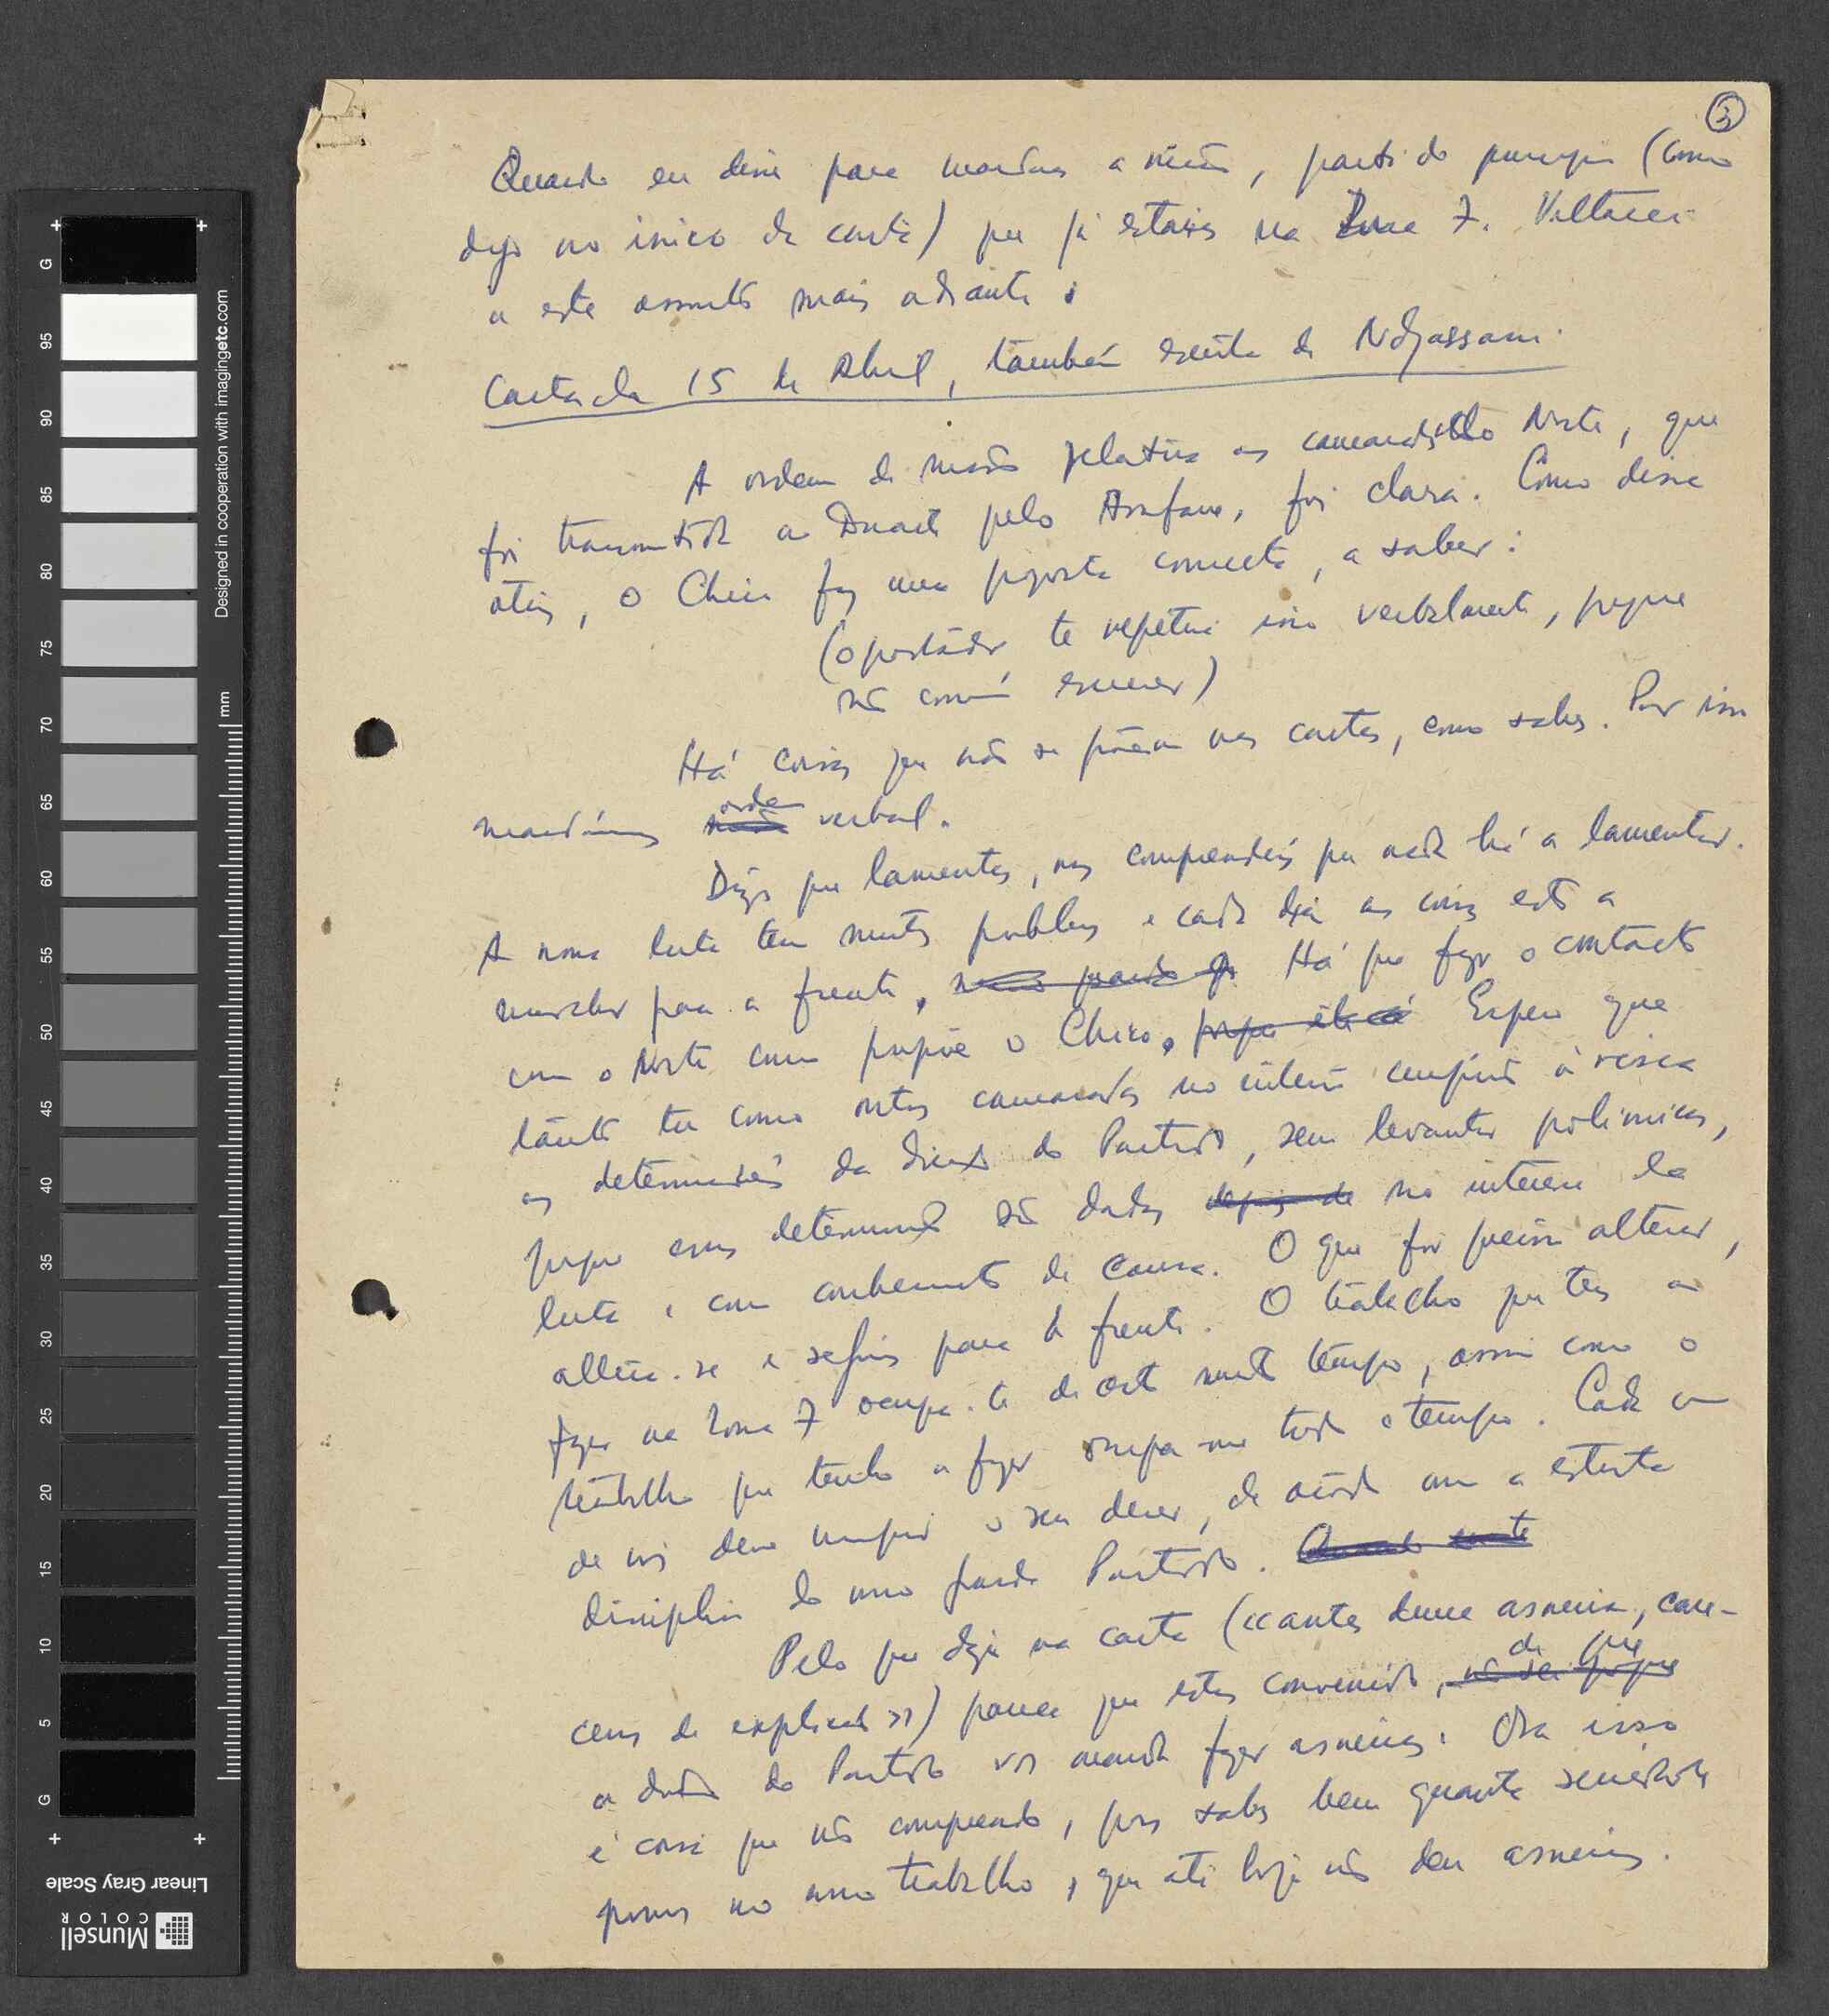 3
Quando eu disse para mandar a missão, parti do princípio (como
digo no início da carta) que já estavas na Zona 7. Voltarei
a este assunto mais adiante.
Carta de 15 de Abril, também escrita de Ndjassani.
A ordem de missão relativa ao comando do Norte, que
foi transmitida ao Duarte pelo Arafam, foi clara. Como disse
atrás, o Chico fez uma proposta concreta, a saber:
(o portador te repetirá isso verbalmente, porque
não convém escrever)
Há coisas que não se põem nas cartas, como sabes. Por isso
mandámos ordem verbal.
Dizes que lamentas, mas compreendes que nada há a lamentar.
A nossa luta tem muitos problemas e cada dia as coisas estão a
marchar para a frente. Há que fazer o contacto
com o Norte como propõe o Chico. Espero que
tanto tu como outros camaradas no interior cumpram à risca
as determinações da direcção do Partido, sem levantar polémicas,
porque essas determinações são dadas no interesse da
luta e com conhecimento de causa. O que for preciso alterar,
altera-se e seguir para a frente. O trabalho que tens a
fazer na Zona 7 ocupa-te de certo muito tempo, assim como o
trabalho que tenho a fazer ocupa-me todo o tempo. Cada um
de nós deve cumprir o seu dever, de acordo com a estrita
disciplina do nosso grande Partido.
Pelo que dizes na carta («antes dessa asneira, care-
cemos de explicação») parece que estás convencido, de que
a direcção do Partido vos manda fazer asneiras. Ora isso
é coisa que não compreendo, pois sabes bem quanta seriedade
pomos no nosso trabalho, que até hoje não deu asneiras.
Designed in cooperation with imagingetc.com
mm
G
95
90
85
80
75
70
65
60
55
50
45
40
35
30
25
20
15
10
5
G
Linear Gray Scale
Munsell
COLOR